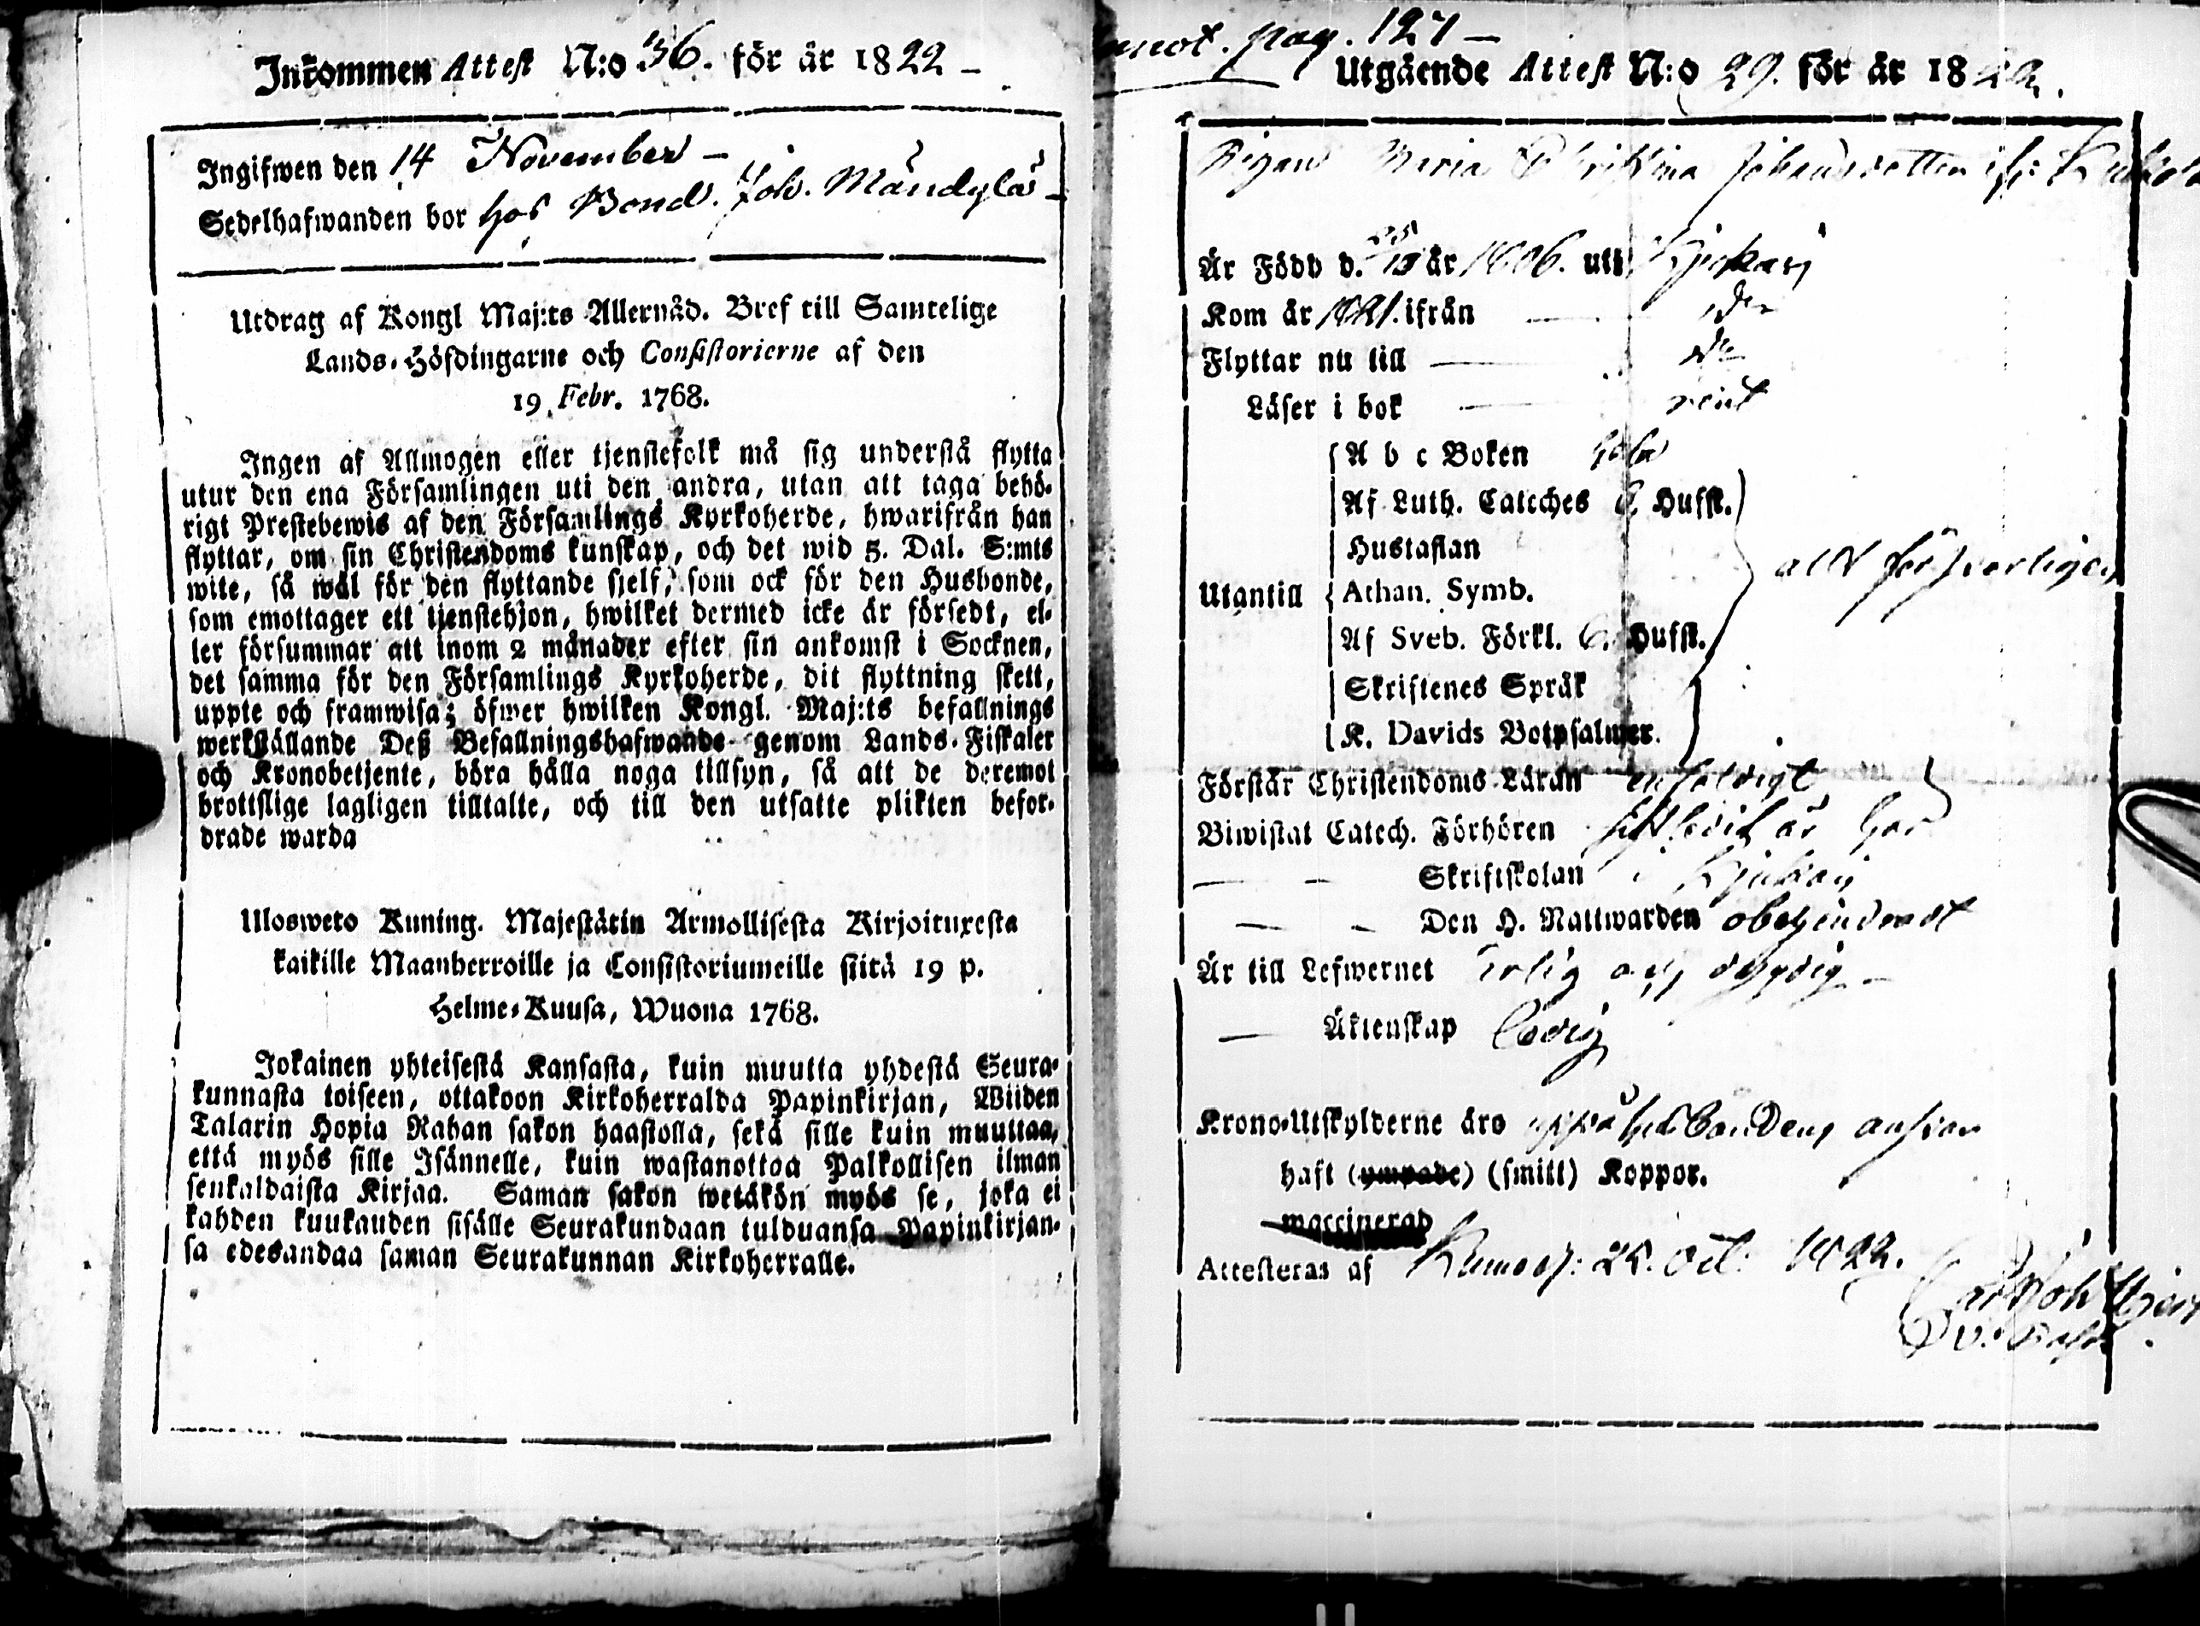 Inkommen Attest N:o 36. för år 1822 –
Ingifwen den 14 November –
Sedelhafwanden bor hos Bond. Joh. Mändylä –
Utdrag af Kongl Maj:ts Allernåd. Bref till Samtelige
Lands-Höfdingarne och Consistorierne af den
19 Febr. 1768.
Ingen af Allmogen eller tjenstefolk må sig understå flytta
utur den ena Församlingen uti den andra, utan att taga behö-
rigt Prestebewis af den Församlings Kyrkoherde, hwarifrån han
flyttar, om sin Christendoms kunskap, och det wid 5. Dal. S:mts
wite, så wäl för den flyttande sjelf, som ock för den Husbonde,
som emottager ett tjenstehjon, hwilket dermed icke är försedt, el-
ler försummar att inom 2 månader efter sin ankomst i Socknen,
det samma för den Församlings Kyrkoherde, dit flyttning skett,
uppte och framwisa; öfwer hwilken Kongl. Maj:ts befallnings
werkställande Deß Befallningshafwande genom Lands-Fiskaler
och Kronobetjente, böra hålla noga tillsyn, så att de deremot
brottslige lagligen tilltalte, och till den utsatte plikten befor-
drade warda
Ulosweto Kuning. Majestätin Armollisesta Kirjoituxesta
kaikille Maanherroille ja Consistoriumeille siitä 19 p.
Helme-Kuusa, Wuona 1768.
Jokainen yhteisestä Kansasta, kuin muutta yhdestä Seura-
kunnasta toiseen, ottakoon Kirkoherralda Papinkirjan, Wiiden
Talarin Hopia Rahan sakon haastolla, sekä sille kuin muuttaa,
että myös sille Isännelle, kuin wastanottaa Palkollisen ilman
senkaldaista Kirjaa. Saman sakon wetäkön myös se, joka ei
kahden kuukauden sisälle Seurakundaan tulduansa Papinkirjan-
sa edesandaa saman Seurakunnan Kirkoherralle.
pag. 127 –
Utgående Attest N:o 29. för år 1822.
Pigan Maria Christina Johansdotter
Är Född d. år 1806. uti
Kom år 1821. ifrån – d:o
Flyttar nu till – d:o
Läser i bok – rent
A b c Boken hela
Af Luth. Cateches 6. Hufst.
Hustaflan
Utantill Athan. Symb. allt försvarligen
Af Sveb. Förkl. 6. Hufst.
Skriftenes Språk
K. Davids Botpsalmer.
Förstår Christendoms Läran enfaldigt
Biwistat Catech. Förhören sistledit år här
– – Skriftskolan i
– – Den H. Nattwarden obehindradt
Är till Lefwernet ärlig och dygdig –
– Äktenskap ledig
Krono-Utskylderne äro uppå husbondens answar
haft (ympade) (smitt) Koppor.
waccinerad
Attesteras af 25. Oct. 1822.